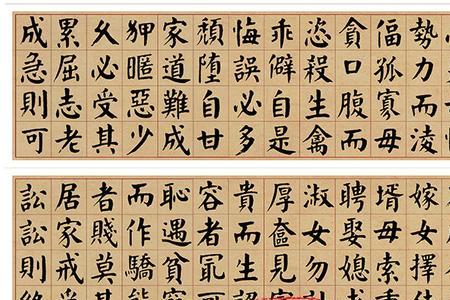 勢力而凌
偪孤寡毋
貪口腹而
恣殺生禽
乖僻自是
悔誤必多
頽堕自甘
家道難成
狎暱惡少
久必受其
累屈志老
成急則可
嫁女擇
壻毋索
聘娶媳
淑女勿
厚奩見
貴而生
容者冣
恥遇貧
而作驕
者賤莫
居家戒
訟訟則